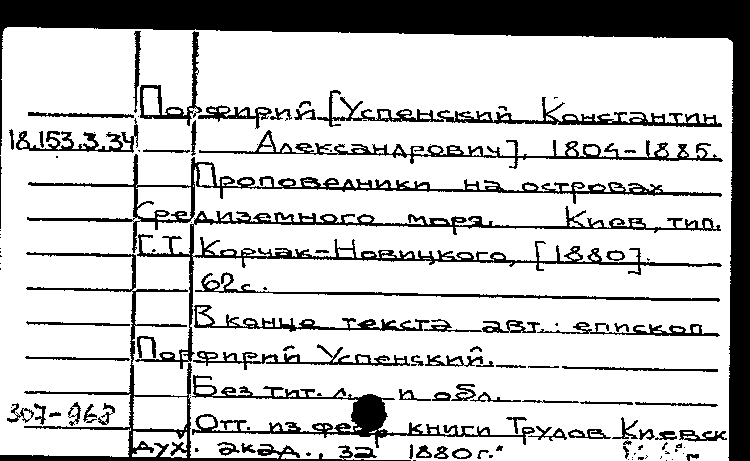 Порфирий [Успенский Константин
18.153.3.34 Александрович], 1804-1885.
Проповедники на островах
Средиземного моря. Киев, тип.
Г.Т. Корчак-Новицкого, [1880].
62с.
В конце текста авт.: епископ
Порфирий Успенский.
Без тит. л. и обл.
307-968 Отт. из февр. книги Трудов Киевск
дух. акад., за 1880г."